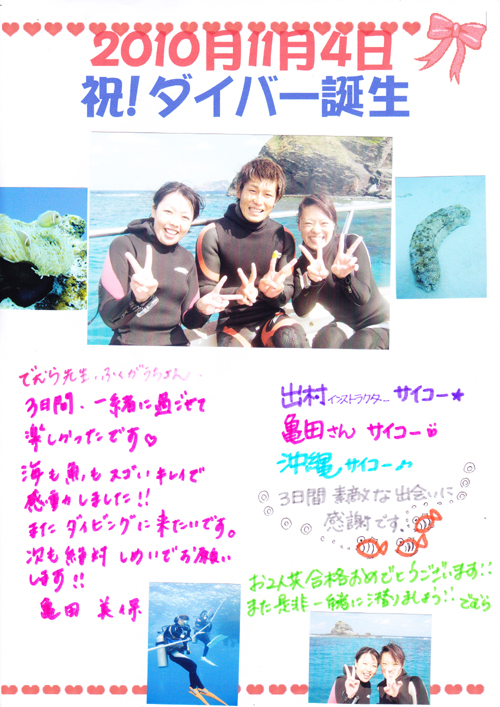 2010月11月4日
祝!ダイバー誕生
でむら先生、ふくがうちさん、
3日間、一緒に過ごせて
楽しかったです♡
海も魚もスゴいキレイで
感動しました!!
またダイビングに来たいです。
次も絶対しめいでお願い
します!!
亀田 美保
出村インストラクター… サイコー★
亀田さん サイコー
沖縄サイコー♪
3日間素敵な出会いに
感謝です。
お2人共合格おめでとうございます!!
また是非一緒に潜りましょう!! でむら